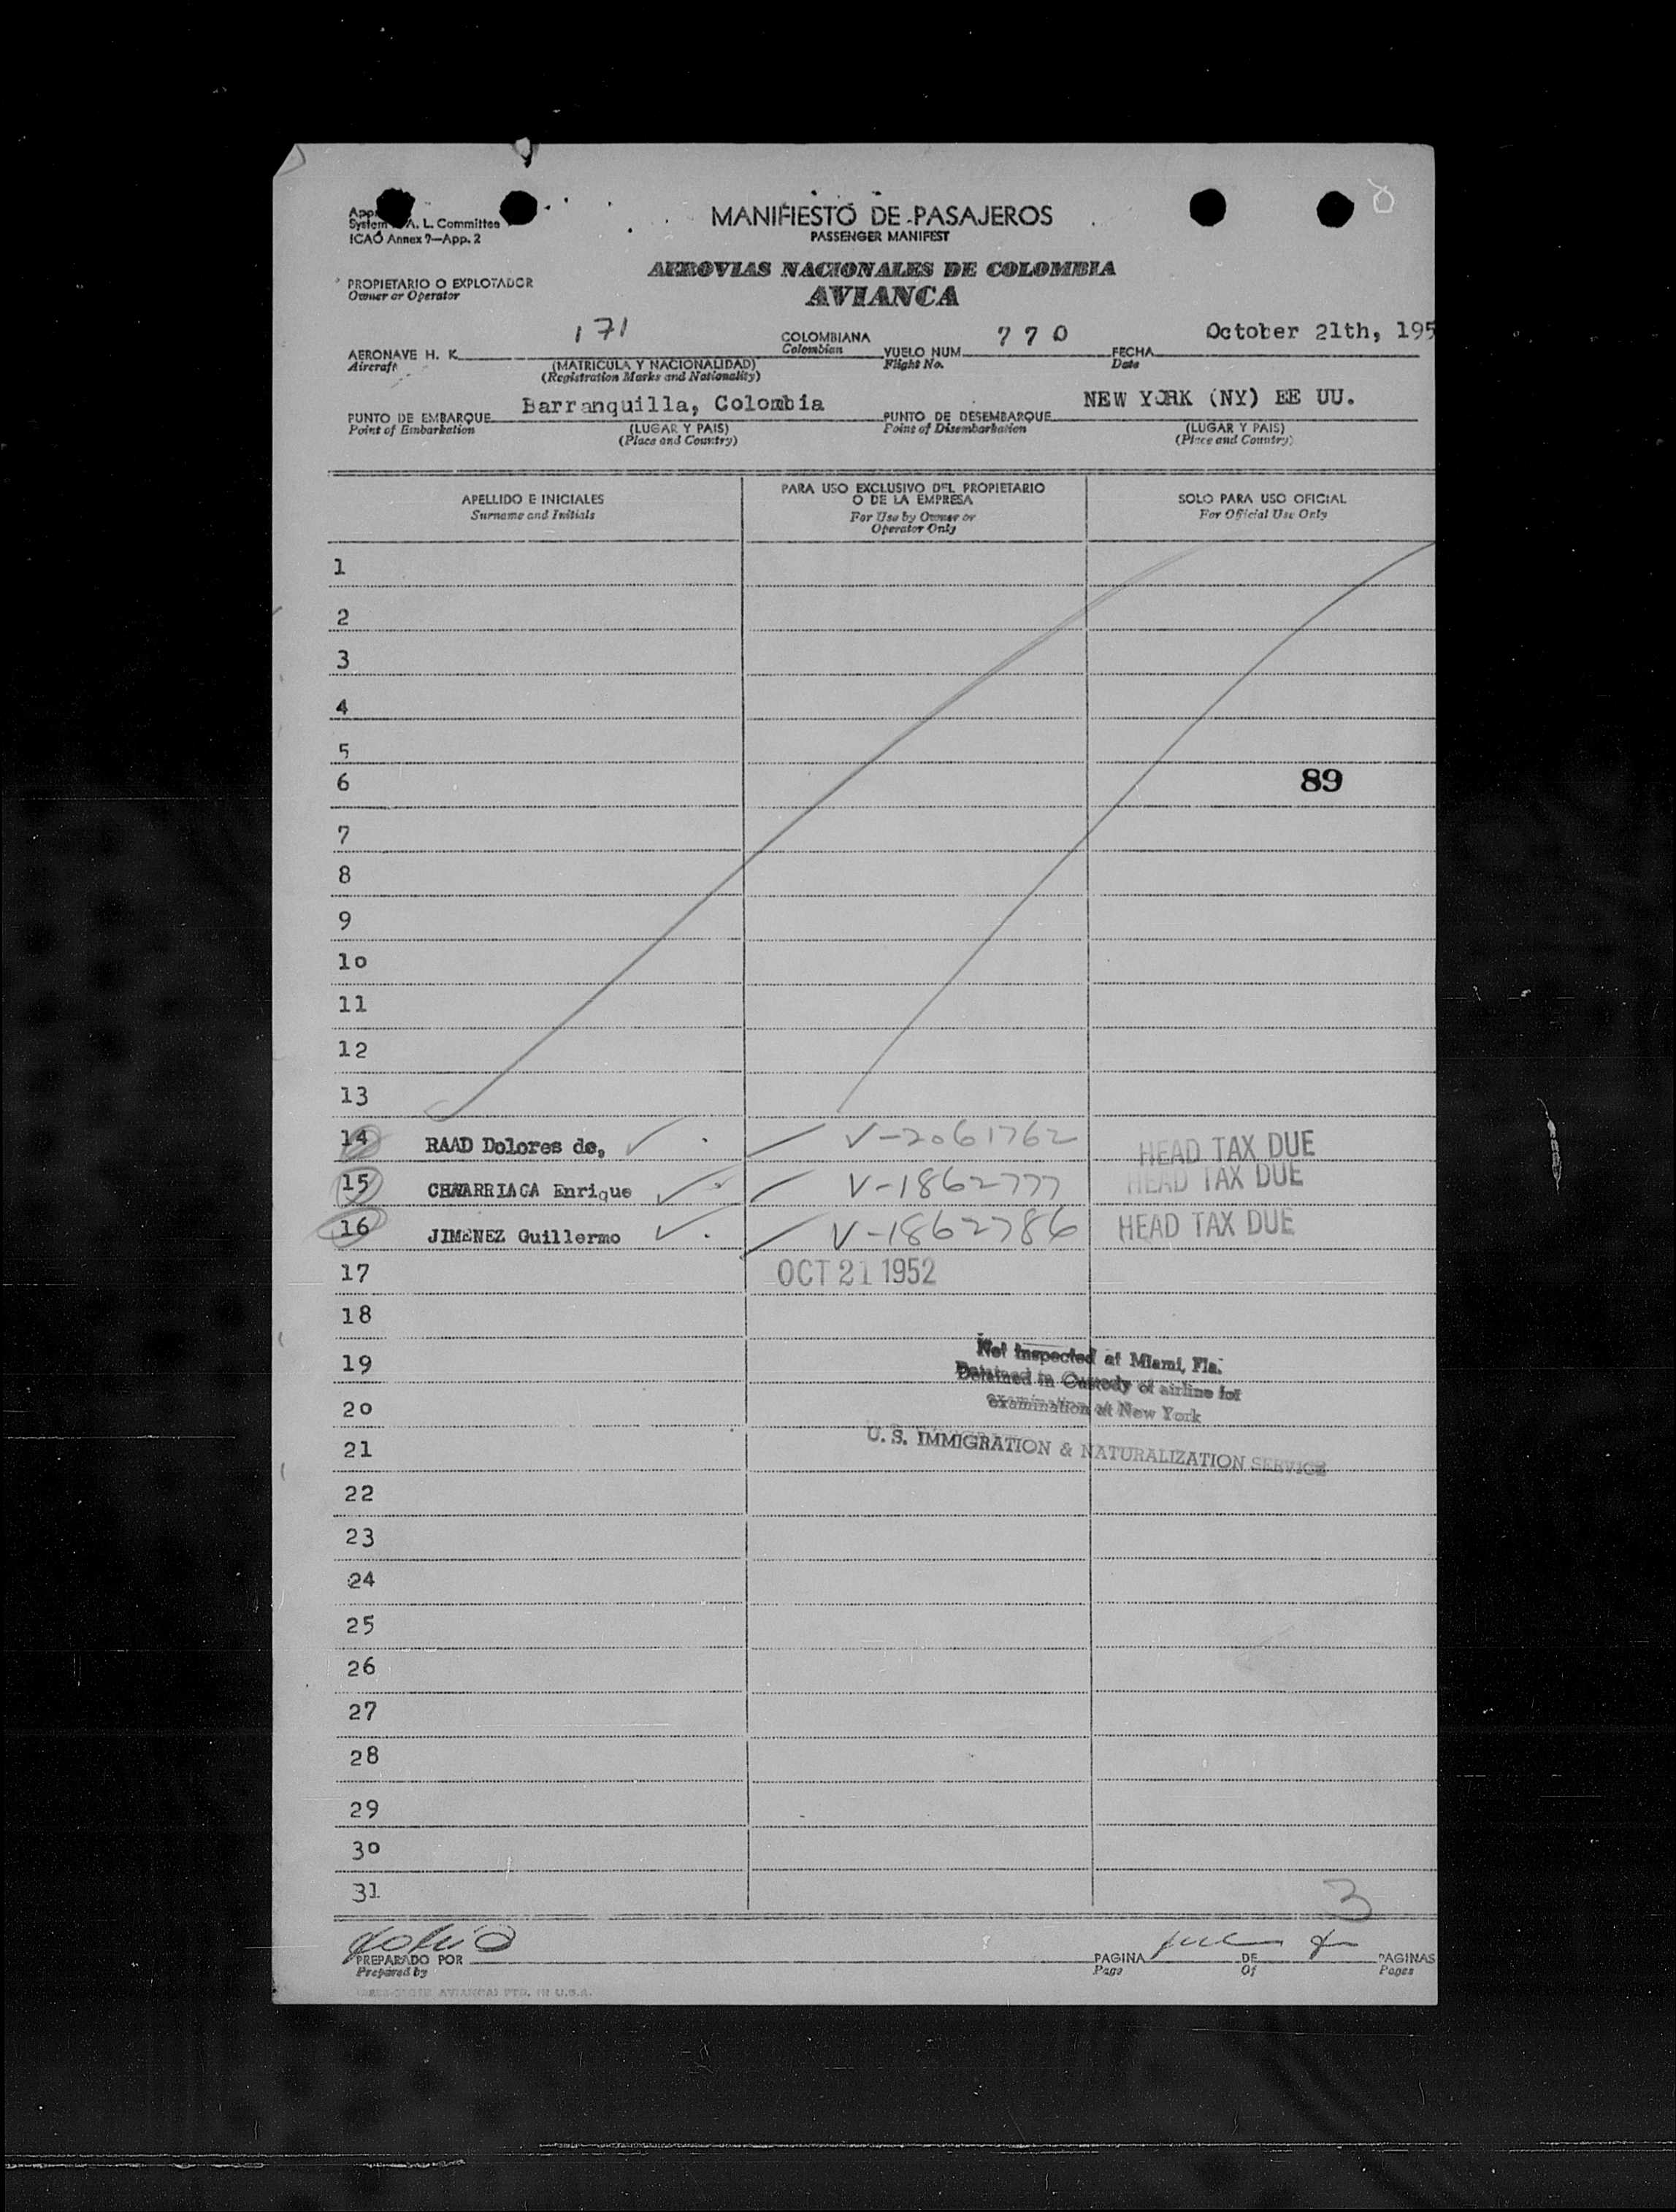 MANIFIESTO DE PASAJEROS
PASSENGER MANIFEST
System A. L. Committee
ICAO Annex 9—App. 2
AEROVIAS NACIONALES DE COLOMBIA
AVIANCA
PROPIETARIO O EXPLOTADOR
Owner or Operator
AERONAVE H. K. 171 COLOMBIANA VUELO NUM. 770 FECHA October 21th, 195
Aircraft (MATRICULA Y NACIONALIDAD) Colombian Flight No. Date
(Registration Marks and Nationality)
PUNTO DE EMBARQUE Barranquilla, Colombia PUNTO DE DESEMBARQUE NEW YORK (NY) EE UU.
Point of Embarkation (LUGAR Y PAIS) Point of Disembarkation (LUGAR Y PAIS)
(Place and Country) (Place and Country)
APELLIDO E INICIALES
Surname and Initials
PARA USO EXCLUSIVO DEL PROPIETARIO
O DE LA EMPRESA
For Use by Owner or
Operator Only
SOLO PARA USO OFICIAL
For Official Use Only
1
2
3
4
5
6 89
7
8
9
10
11
12
13
14 RAAD Dolores de, V-2061762 HEAD TAX DUE
15 CHAVARRIAGA Enrique V-1862777 HEAD TAX DUE
16 JIMENEZ Guillermo V-1862786 HEAD TAX DUE
17 OCT 21 1952
18
19 Not Inspected at Miami, Fla.
Detained in Custody of airline for
20 examination at New York
21 U. S. IMMIGRATION & NATURALIZATION SERVICE
22
23
24
25
26
27
28
29
30
31
3
PREPARADO POR PAGINA DE PAGINAS
Prepared by Page Of Pages